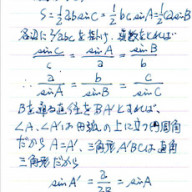 S = 1/2 ab sin C = 1/2 bc sin A = 1/2 ca sin B
各辺に 2/abc を掛け、逆数をとれば…
sin C / c = sin A / a = sin B / b
∴ a / sin A = b / sin B = c / sin C
Bを通る直径をBA'とすれば、
∠A、∠A'は同弧の上に立つ円周角
だから A = A'. 三角形A'BCは直角
三角形だから
sin A' = a / 2R = sin A